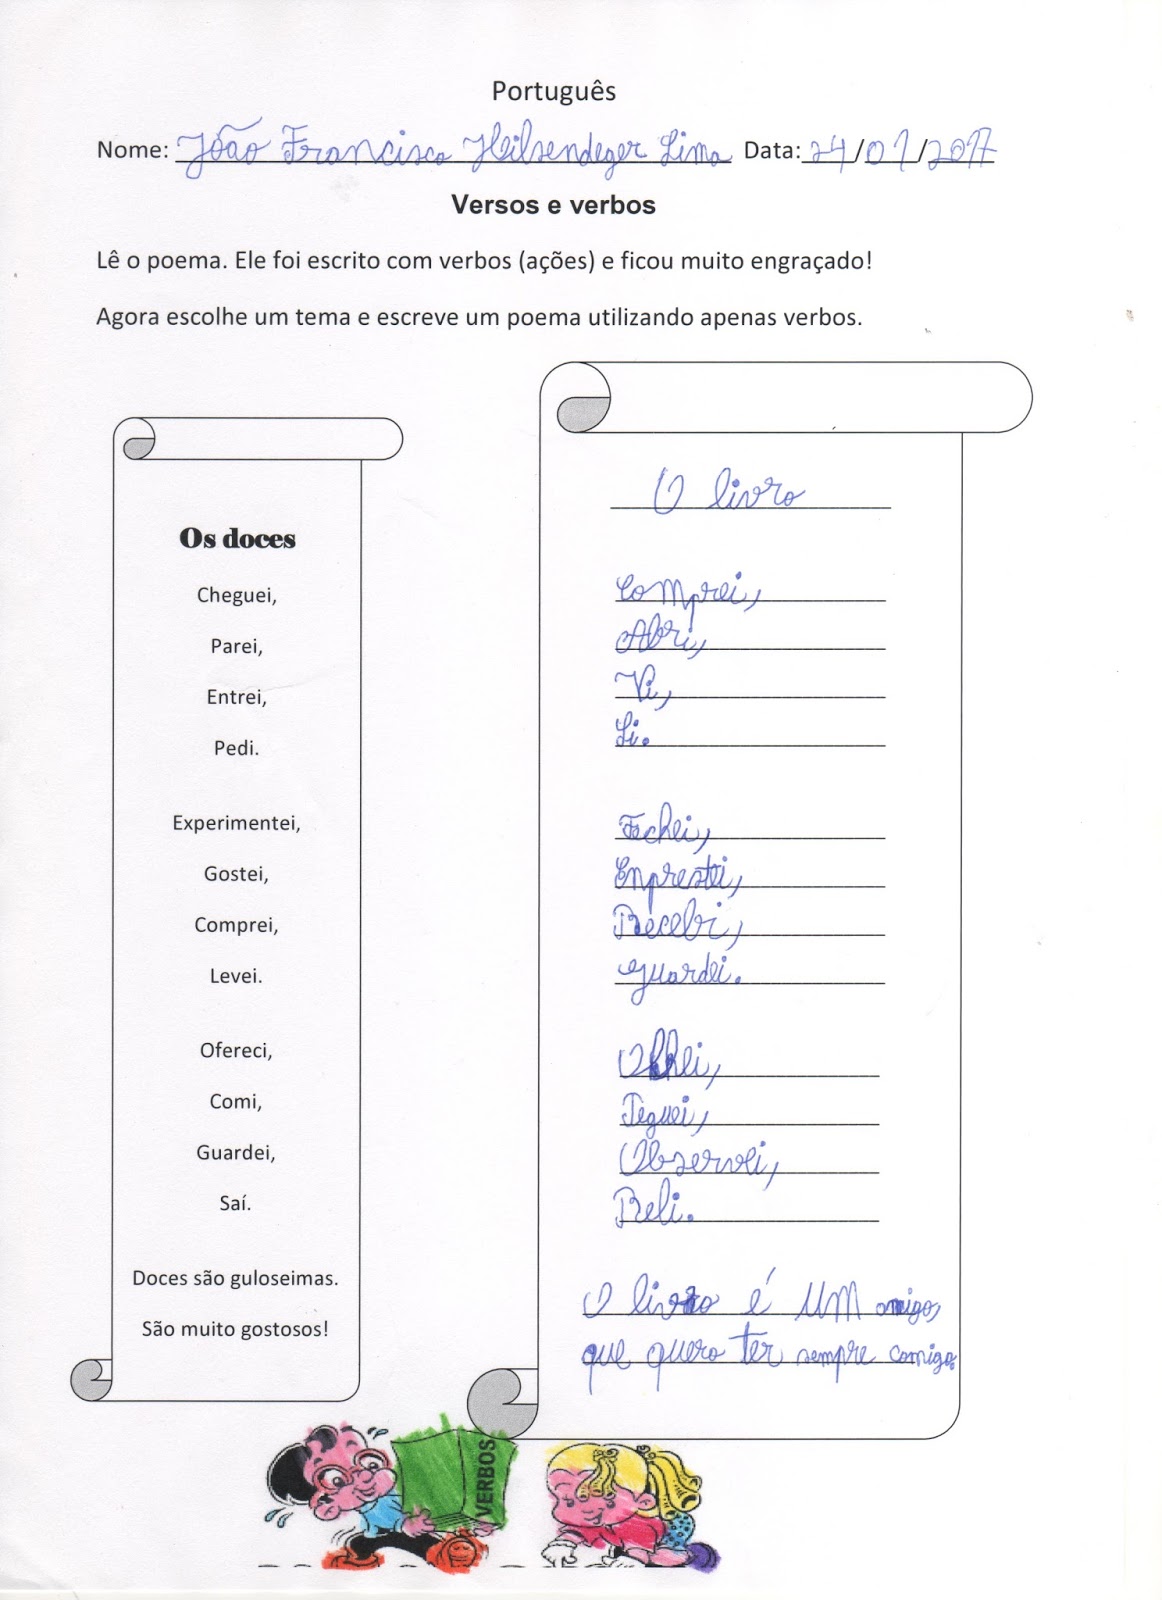 Português
Nome: João Francisco Heilsendeger Lima Data: 24/01/2017
Versos e verbos
Lê o poema. Ele foi escrito com verbos (ações) e ficou muito engraçado!
Agora escolhe um tema e escreve um poema utilizando apenas verbos.
Os doces
Cheguei,
Parei,
Entrei,
Pedi.
Experimentei,
Gostei,
Comprei,
Levei.
Ofereci,
Comi,
Guardei,
Saí.
Doces são guloseimas.
São muito gostosos!
O livro
Comprei,
Abri,
Vi,
Li.
Fechei,
Enprestei,
Recebi,
guardei.
Olhei,
Peguei,
Observei,
Reli.
O livro é um amigo,
que quero ter sempre comigo.
VERBOS